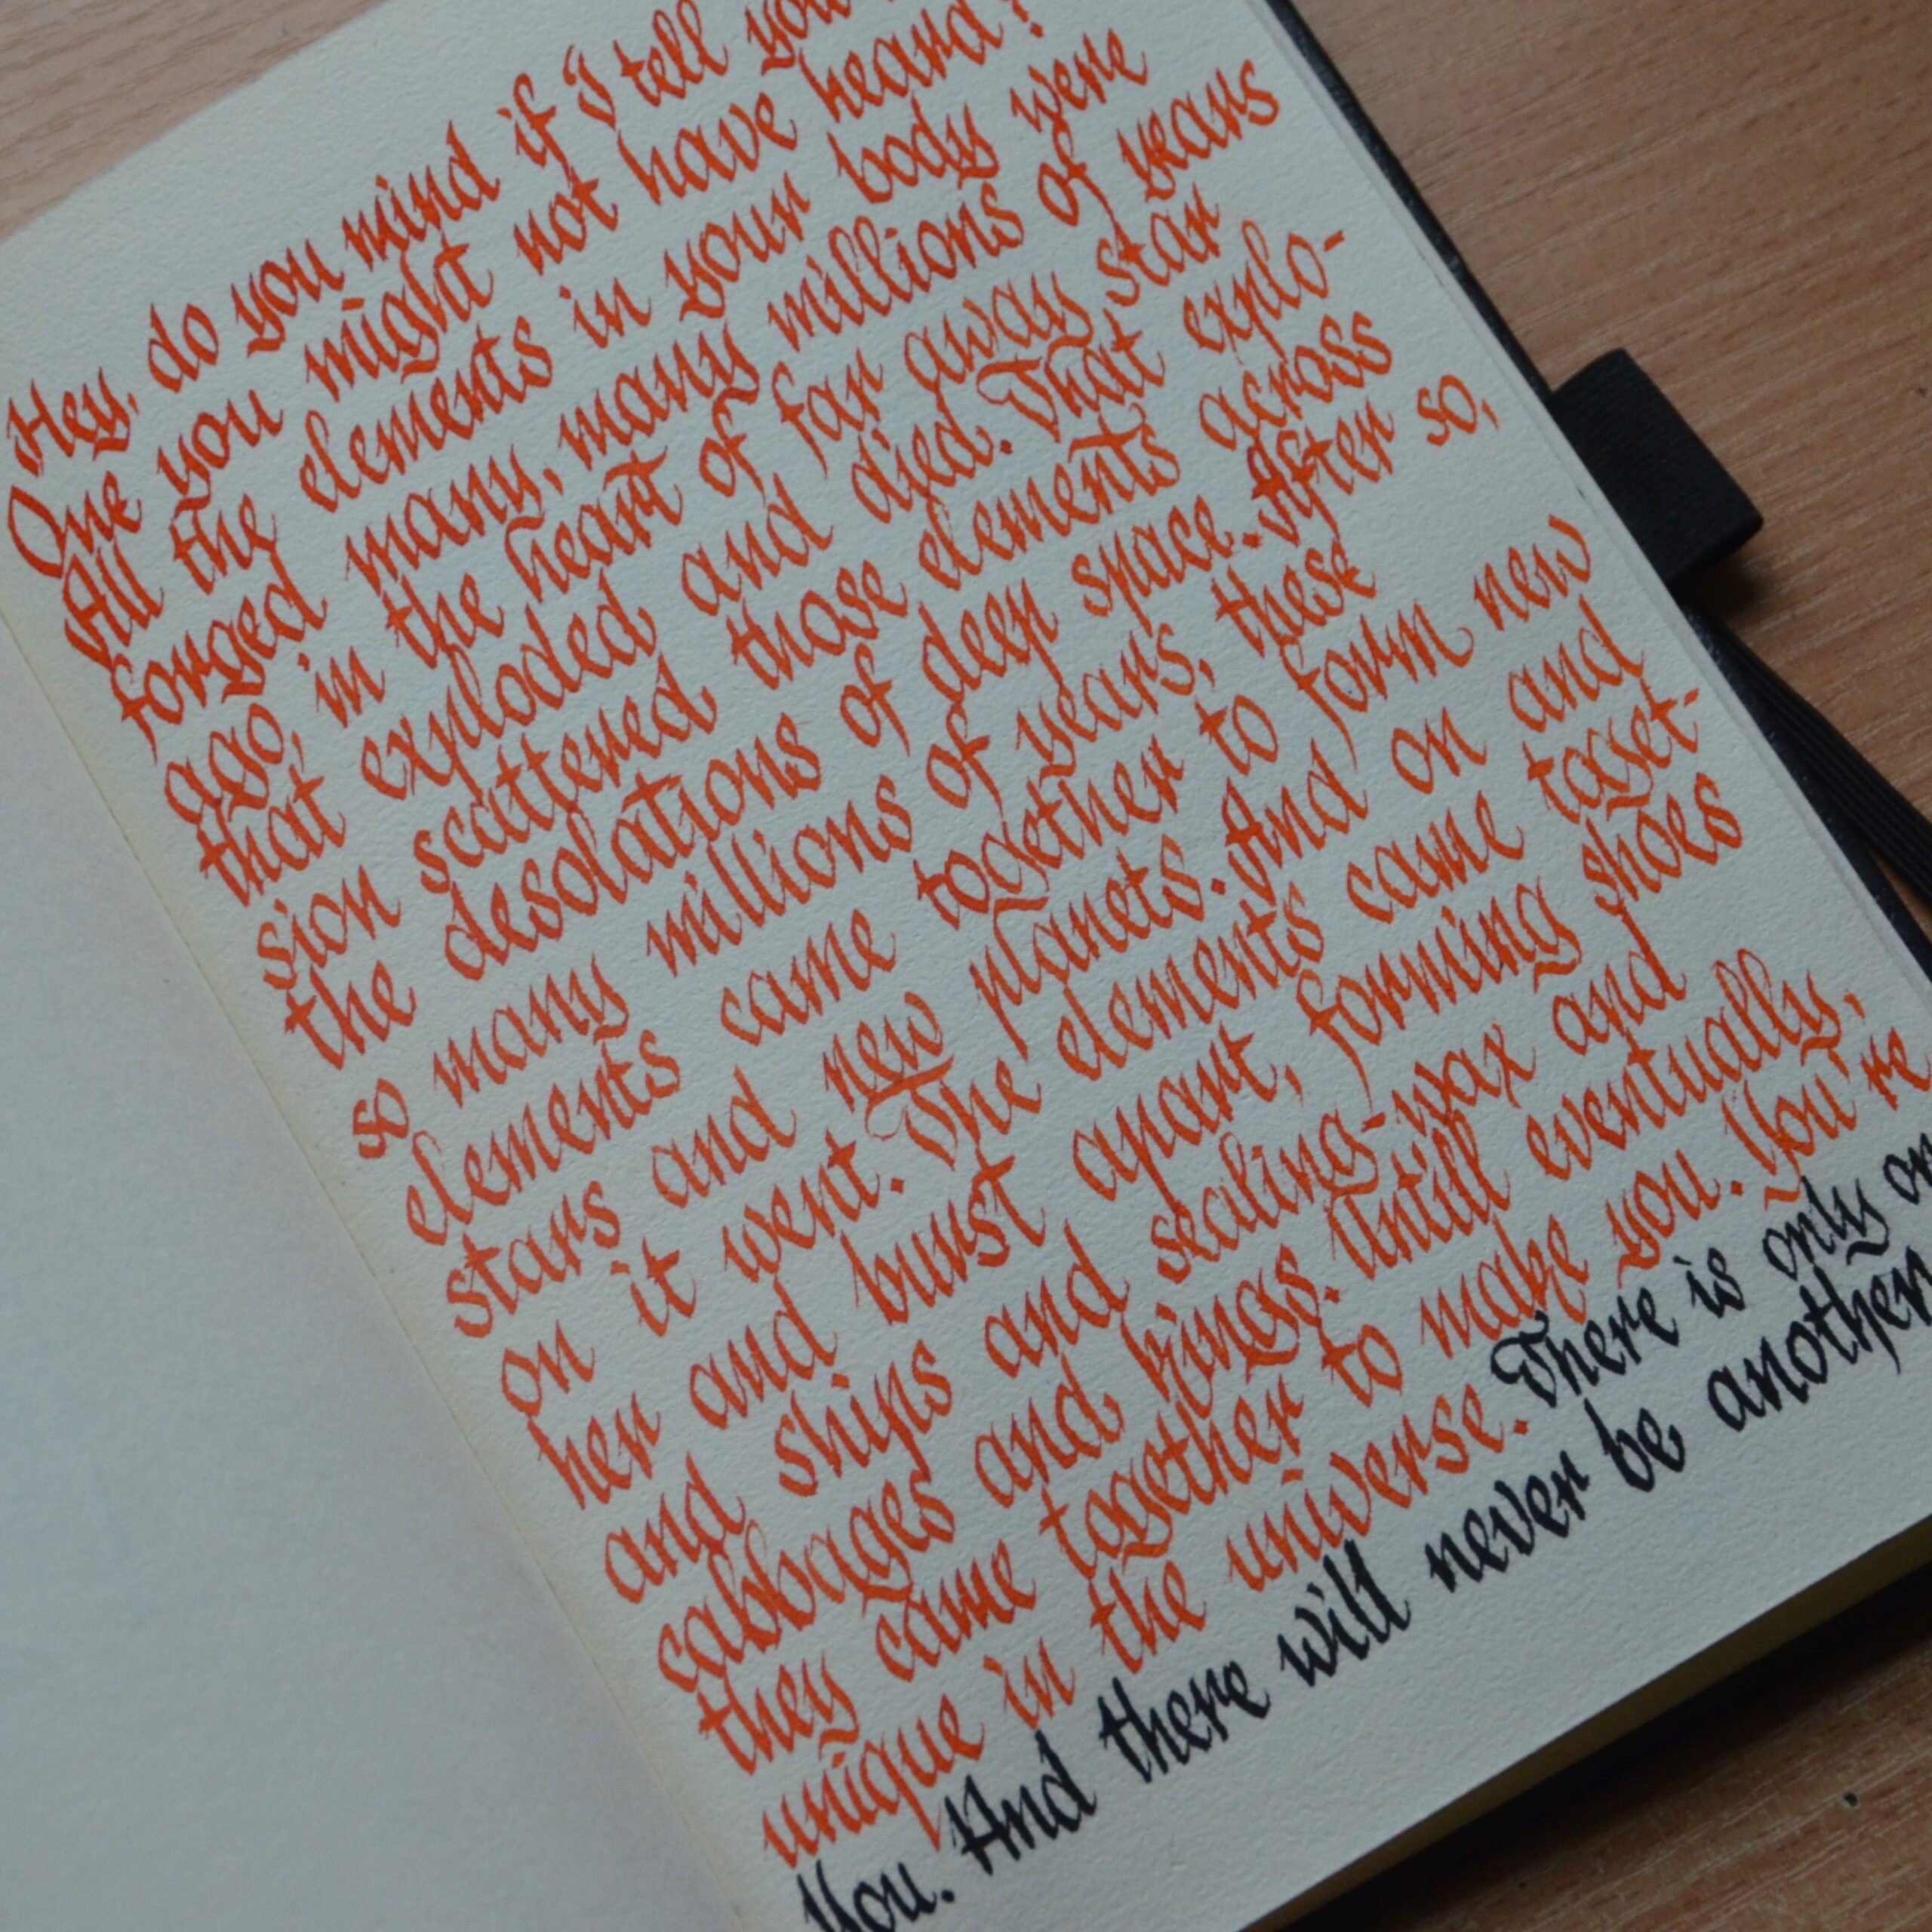 Hey, do you mind if I tell you
One you might not have heard?
All the elements in your body were
forged many, many millions of years
ago, in the heart of far away star
that exploded and died. That explo-
sion scattered those elements across
the desolations of deep space. After so,
so many millions of years, these
elements came together to form new
stars and new planets. And on and
on it went. The elements came toget-
her and burst apart, forming shoes
and ships and sealing-wax and
cabbages and kings. Untill eventually,
they came together to make you. You're
unique in the universe. There is only
You. And there will never be another